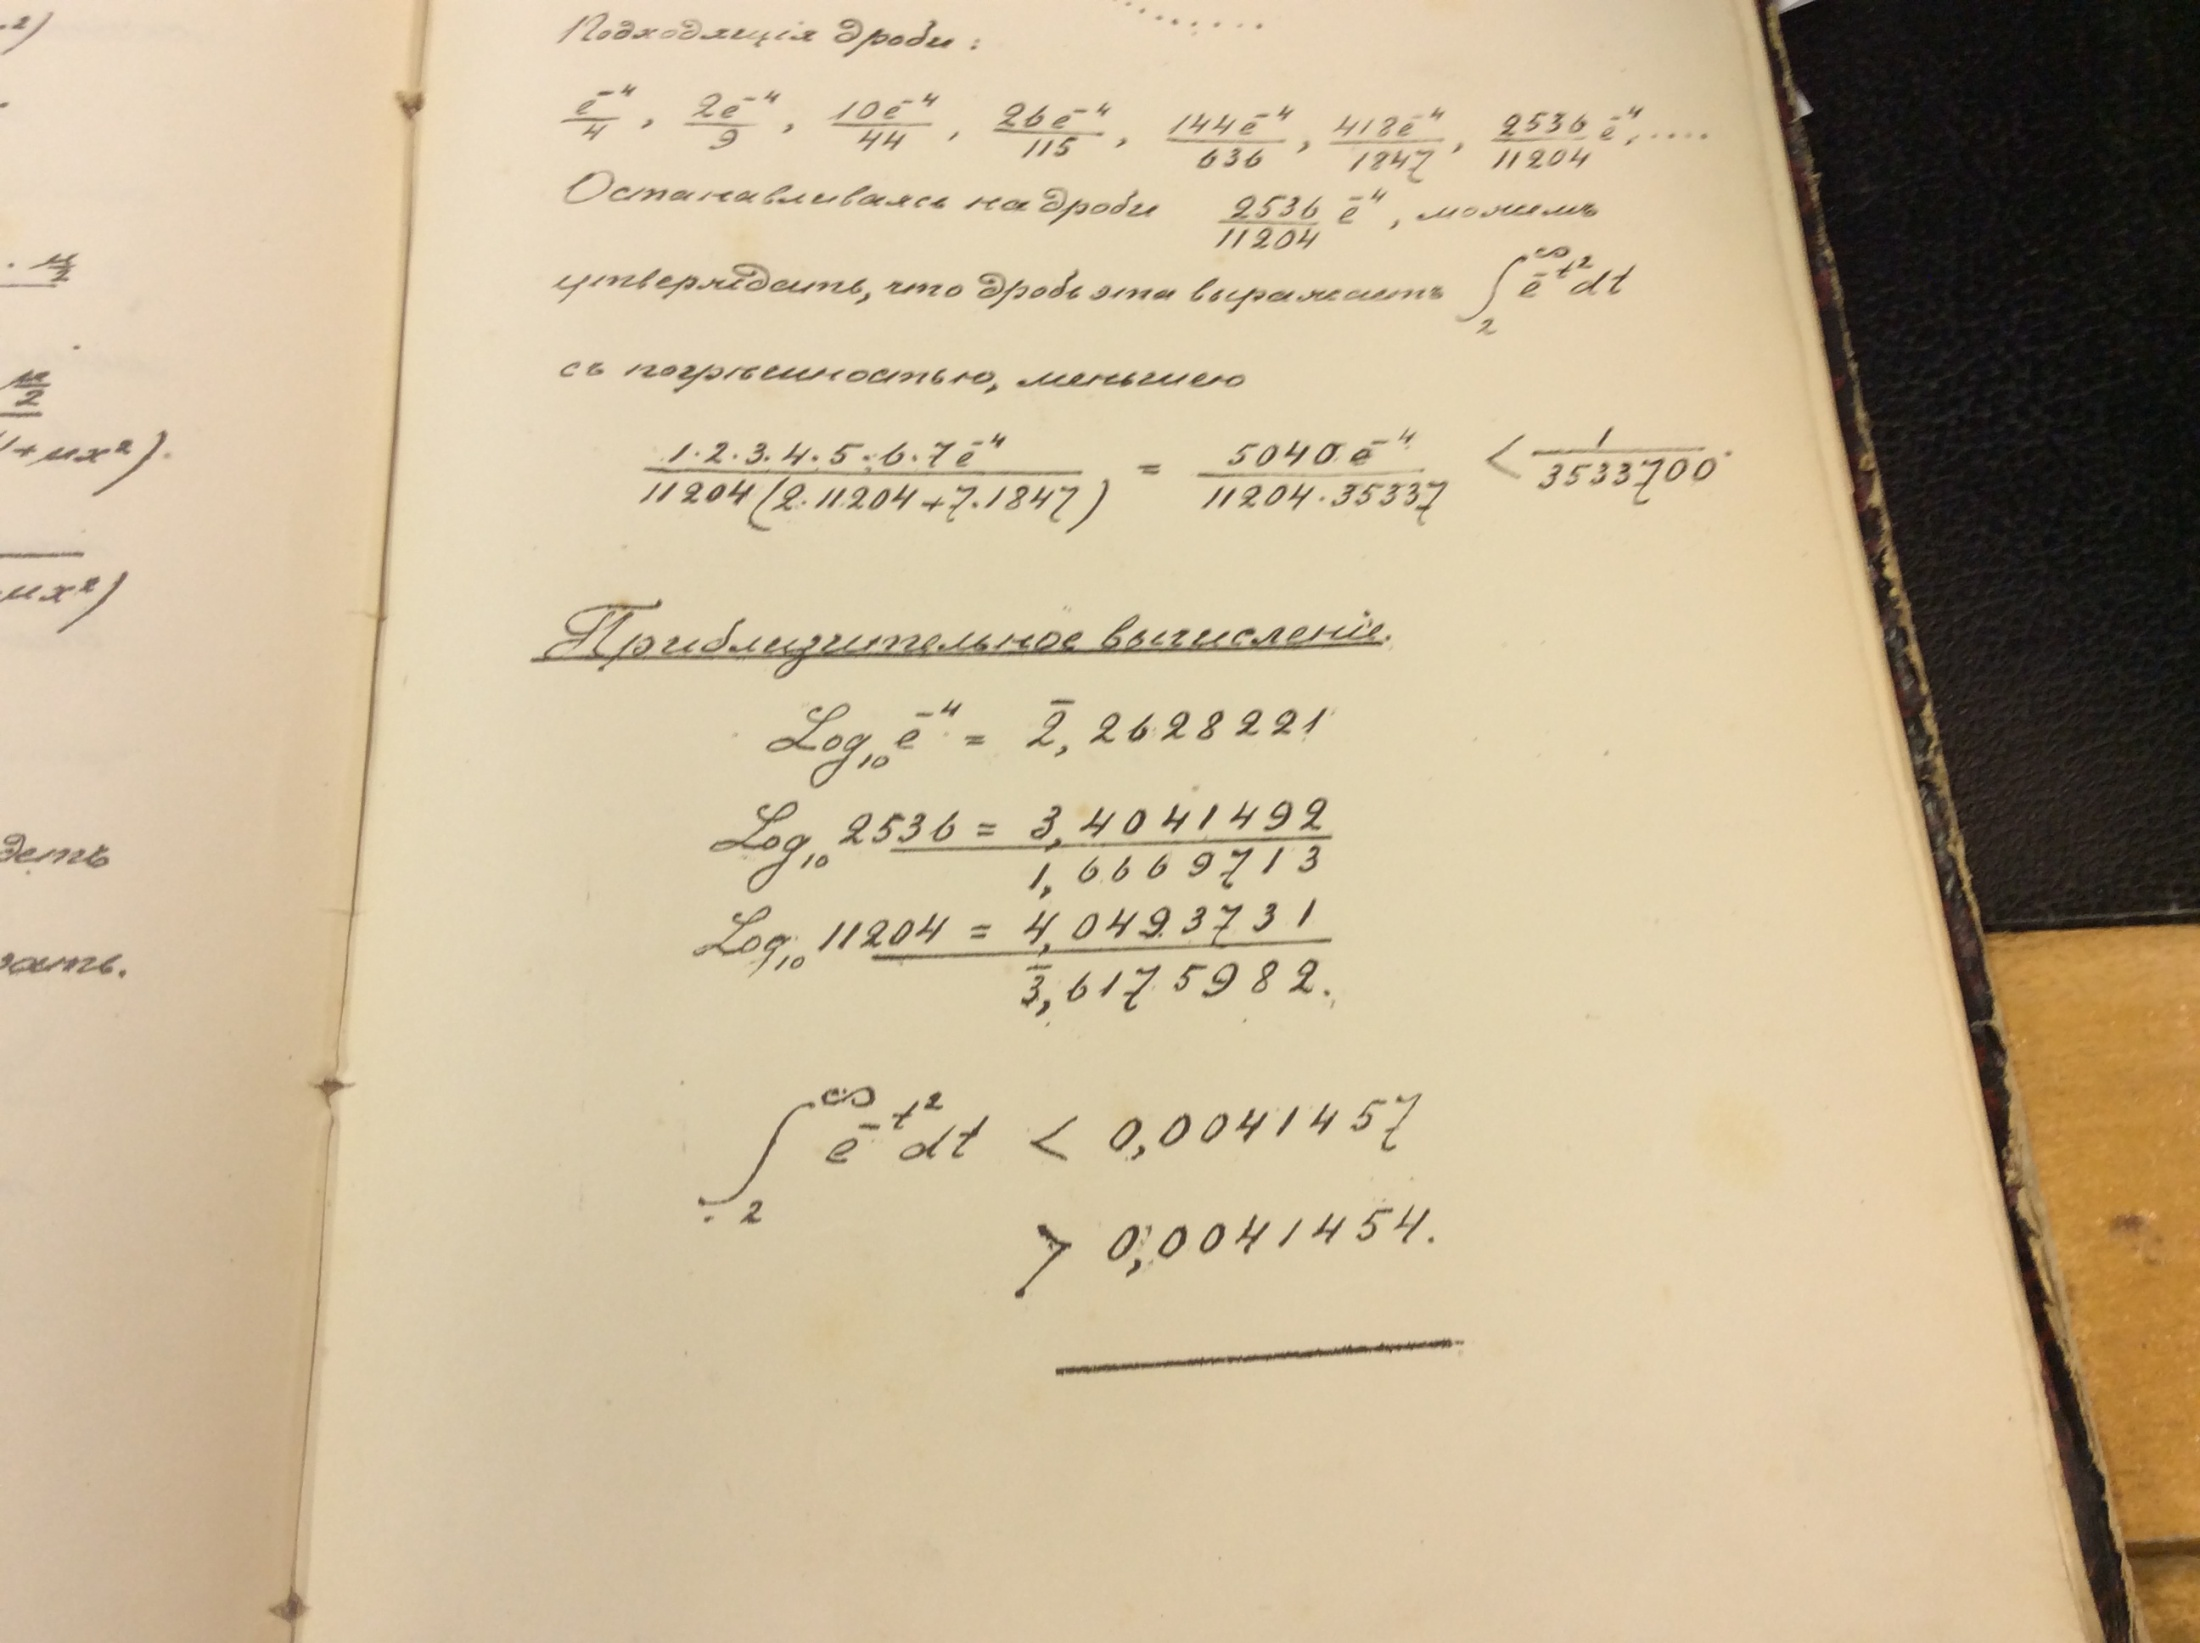 Подходящія дроби:
e^{-4}/4, 2e^{-4}/9, 10e^{-4}/44, 26e^{-4}/115, 144e^{-4}/636, 418e^{-4}/1847, 2536/11204 e^{-4}, ....
Останавливаясь на дроби 2536/11204 e^{-4}, можемъ
утверждать, что дробь эта выражаетъ ∫_2^∞ e^{-t²}dt
съ погрѣшностью, меньшею
1·2·3·4·5·6·7e^{-4}/11204(2·11204+7·1847) = 5040.e^{-4}/11204·35337 < 1/3533700.
Приблизительное вычисленіе.
Log₁₀ e^{-4} = 2̄,2628221
Log₁₀ 2536 = 3,4041492
1,6669713
Log₁₀ 11204 = 4,0493731
3̄,6175982.
∫_2^∞ e^{-t²}dt < 0,0041457
> 0,0041454.
2)
. μ/2
μ/2
1+μx²).
μx²)